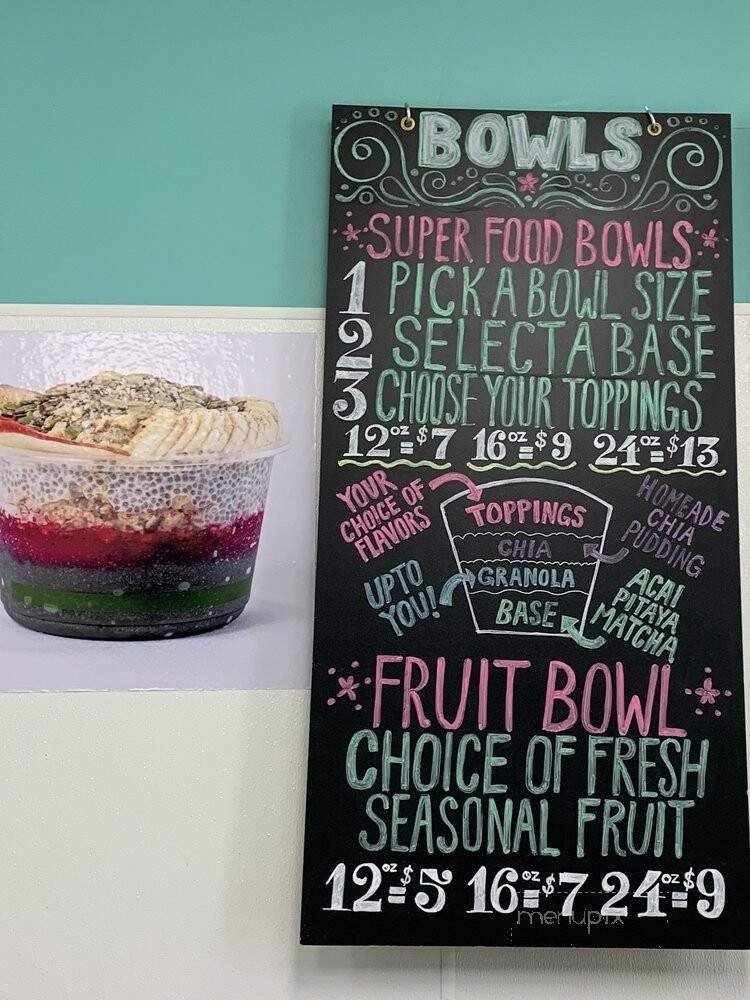 BOWLS
SUPER FOOD BOWLS
1 PICK A BOWL SIZE
2 SELECT A BASE
3 CHOOSE YOUR TOPPINGS
12oz=$7 16oz=$9 24oz=$13
YOUR
CHOICE OF
FLAVORS
TOPPINGS
CHIA
GRANOLA
BASE
HOMEADE
CHIA
PUDDING
UP TO
YOU!
ACAI
PITAYA
MATCHA
FRUIT BOWL
CHOICE OF FRESH
SEASONAL FRUIT
12oz=$5 16oz=$7 24oz=$9
menupix